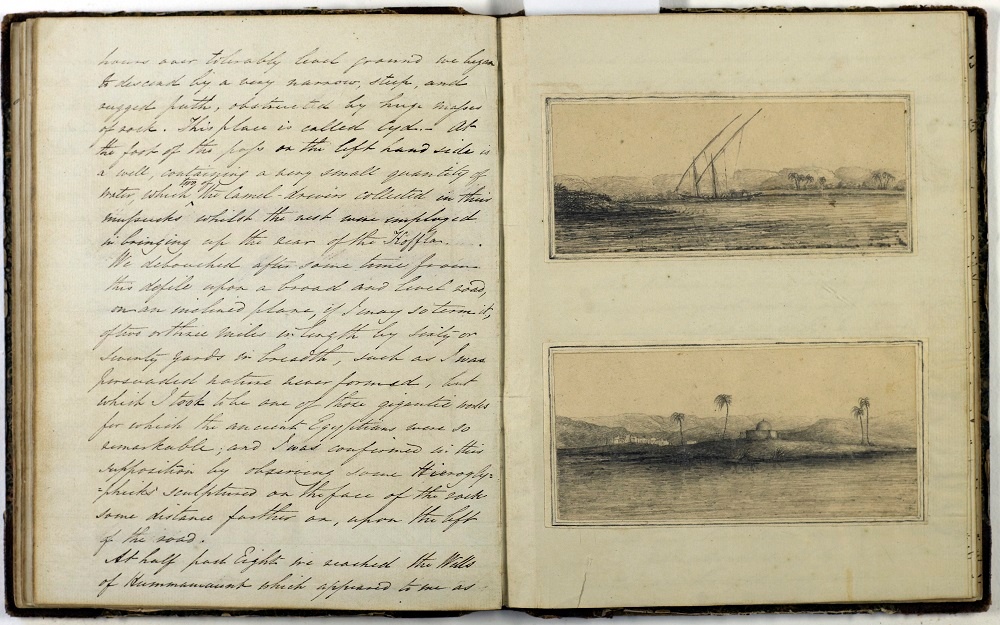 hours over tolerably level ground we began
to descend by a very narrow, steep, and
rugged path, obstructed by huge masses
of rock. This place is called Syd. - At
the foot of the pass on the left hand side is
a well, containing a very small quantity of
water, which two of the Camel-drivers collected in their
mussucks whilst the rest were employed
in bringing up the rear of the Koffla.
We debouched after some time from
this defile upon a broad and level road,
on an inclined plane, if I may so term it,
of two or three miles in length by sixty or
seventy yards in breadth, such as I was
persuaded nature never formed, but
which I took to be one of those gigantic works
for which the ancient Egyptians were so
remarkable; and I was confirmed in this
supposition by observing some Hierogly=
=phicks sculptured on the face of the rock
some distance farther on, upon the left
of the road.
At half past Eight we reached the Wells
of Hummamaunt which appeared to me as